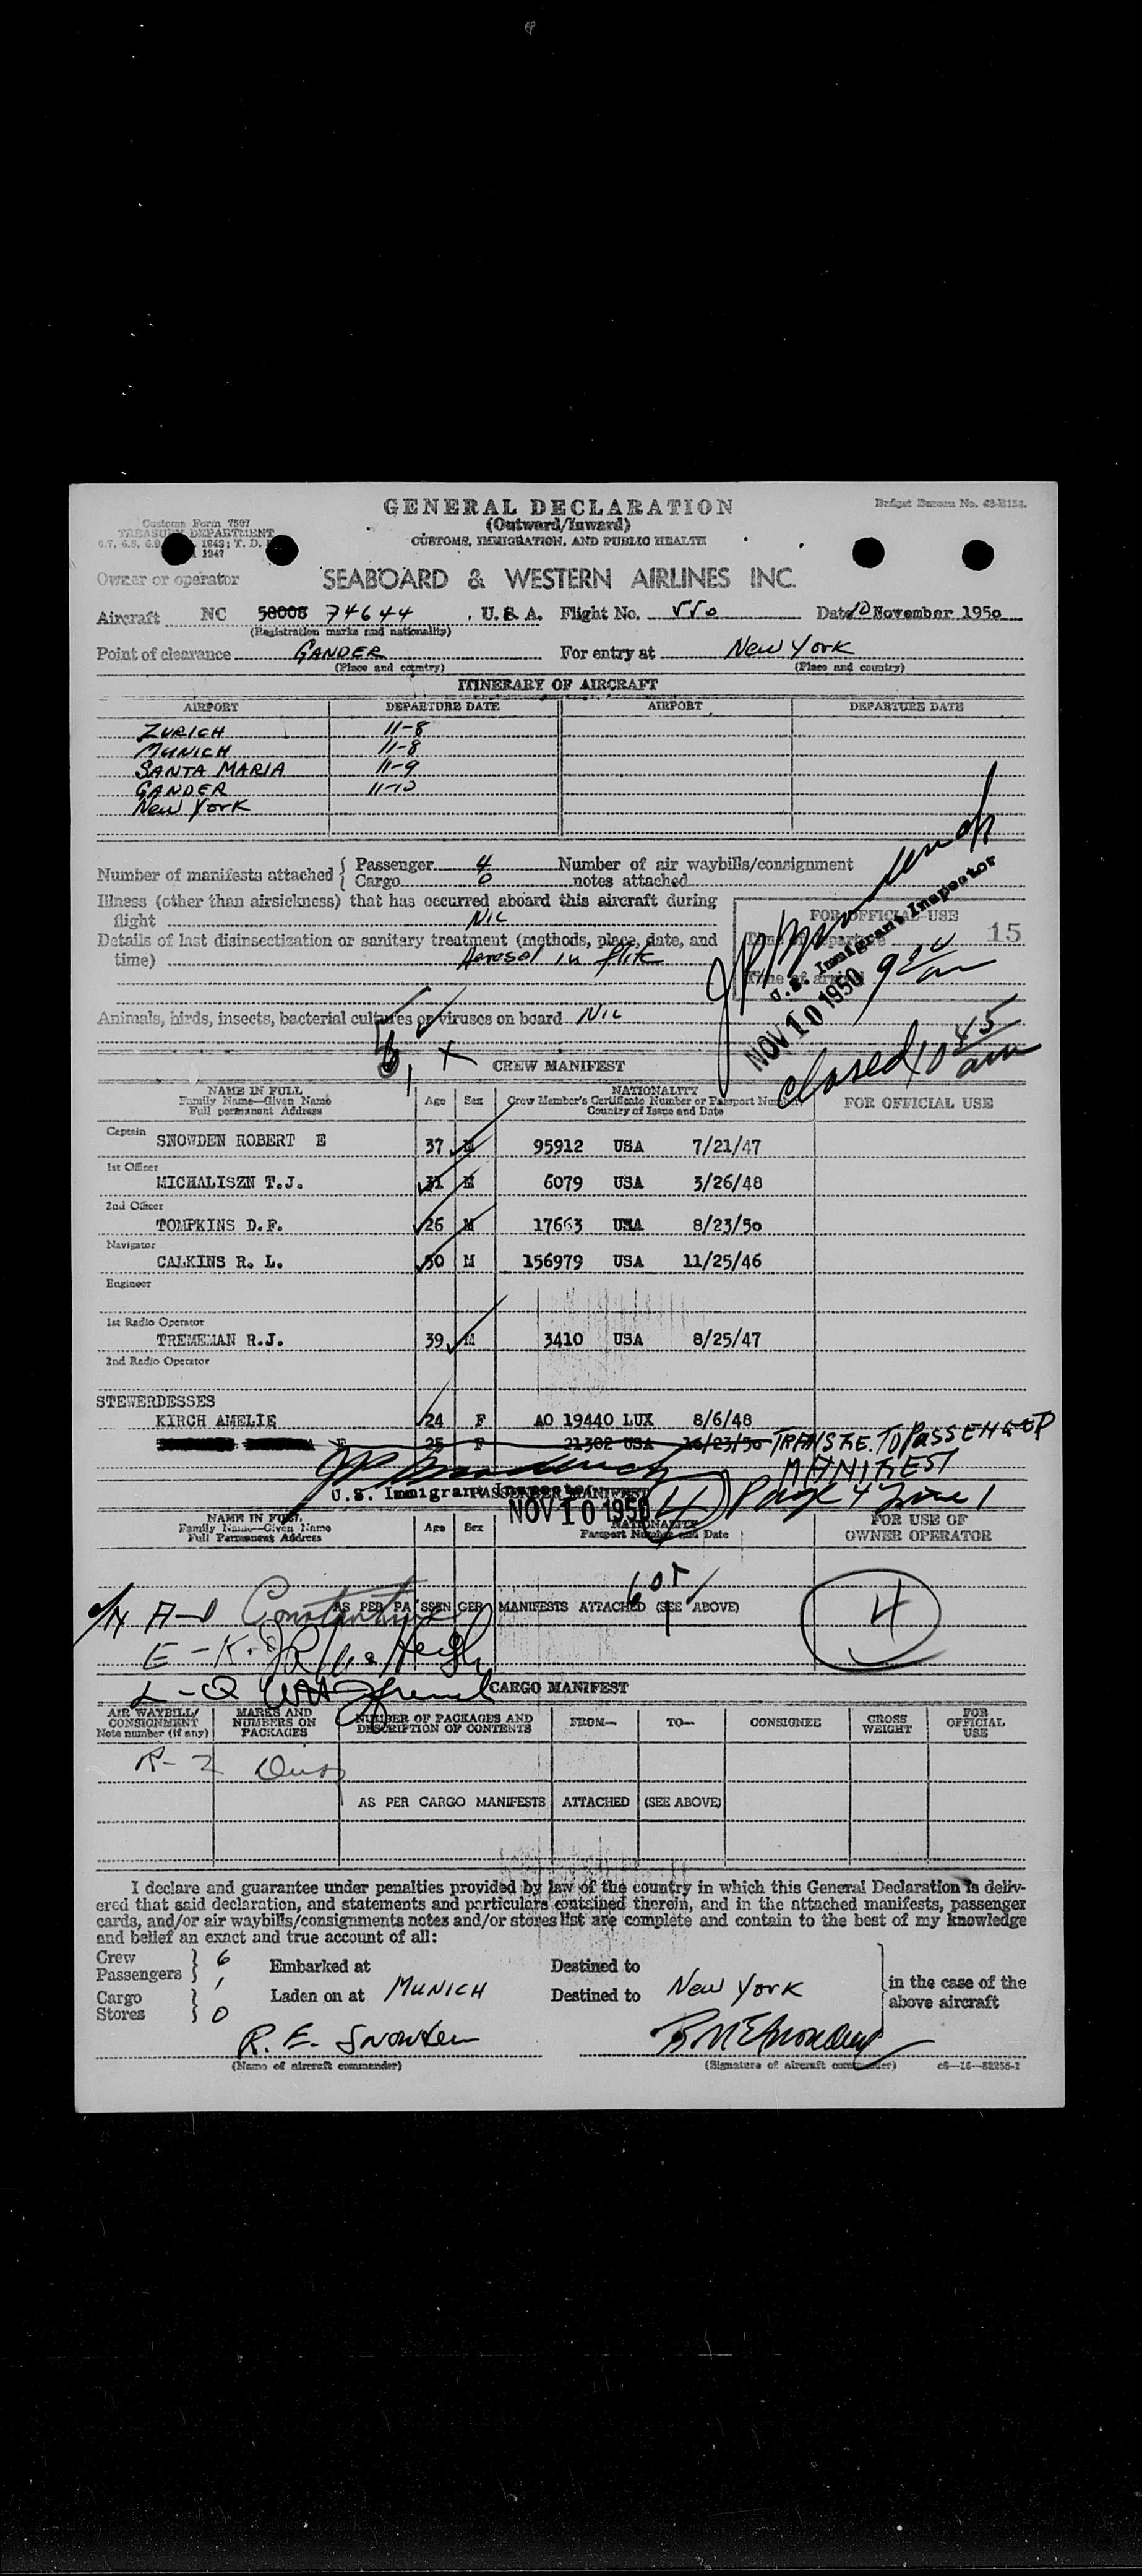 GENERAL DECLARATION
(Outward/Inward)
CUSTOMS, IMMIGRATION, AND PUBLIC HEALTH
Budget Bureau No.
Customs Form 7507
TREASURY DEPARTMENT
1947
Owner or operator SEABOARD & WESTERN AIRLINES INC.
Aircraft NC 58008 74644, U.S.A. Flight No. 550 Date 10 November 1950
(Registration marks and nationality)
Point of clearance GANDER For entry at New York
(Place and country) (Place and country)
ITINERARY OF AIRCRAFT
AIRPORT DEPARTURE DATE AIRPORT DEPARTURE DATE
ZURICH 11-8
MUNICH 11-8
SANTA MARIA 11-9
GANDER 11-10
New York
Number of manifests attached { Passenger 4 Number of air waybills/consignment
Cargo 0 notes attached
Illness (other than airsickness) that has occurred aboard this aircraft during
flight NIL
FOR OFFICIAL USE
15
Details of last disinsectization or sanitary treatment (methods, place, date, and
time) Aerosol in flite
Time of departure
Time of arrival
U.S. Immigrant Inspector
NOV 10 1950
Animals, birds, insects, bacterial cultures or viruses on board NIL
Closed 10 45 am
CREW MANIFEST
NAME IN FULL
Family Name—Given Name
Full permanent Address
Age Sex
NATIONALITY
Crew Member's Certificate Number or Passport Number,
Country of Issue and Date
FOR OFFICIAL USE
Captain
SNOWDEN ROBERT E 37 M 95912 USA 7/21/47
1st Officer
MICHALISZN T.J. 31 M 6079 USA 3/26/48
2nd Officer
TOMPKINS D.F. 26 M 17663 USA 8/23/50
Navigator
CALKINS R. L. 50 M 156979 USA 11/25/46
Engineer
1st Radio Operator
TREMEMAN R.J. 39 M 3410 USA 8/25/47
2nd Radio Operator
STEWERDESSES
KIRCH AMELIE 24 F AO 19440 LUX 8/6/48
25 F 21302 USA 10/23/50 TRANSFE. TO PASSENGER
MANIFEST
Page 4 Line 1
U.S. Immigrant Inspector
PASSENGER MANIFEST
NOV 10 1950
4
NAME IN FULL
Family Name—Given Name
Full Permanent Address
Age Sex
NATIONALITY
Passport Number and Date
FOR USE OF
OWNER OPERATOR
AS PER PASSENGER MANIFESTS ATTACHED (SEE ABOVE)
4
A-D
E-K
L-Q
CARGO MANIFEST
AIR WAYBILL/
CONSIGNMENT
Note number (if any)
MARKS AND
NUMBERS ON
PACKAGES
NUMBER OF PACKAGES AND
DESCRIPTION OF CONTENTS
FROM— TO— CONSIGNEE
GROSS
WEIGHT
FOR
OFFICIAL
USE
R-Z
AS PER CARGO MANIFESTS ATTACHED (SEE ABOVE)
I declare and guarantee under penalties provided by law of the country in which this General Declaration is deliv-
ered that said declaration, and statements and particulars contained therein, and in the attached manifests, passenger
cards, and/or air waybills/consignments notes and/or stores list are complete and contain to the best of my knowledge
and belief an exact and true account of all:
Crew 6
Passengers
Embarked at Destined to
Cargo
Stores 0
Laden on at MUNICH Destined to New York
in the case of the
above aircraft
R. E. Snowden
(Name of aircraft commander) (Signature of aircraft commander)